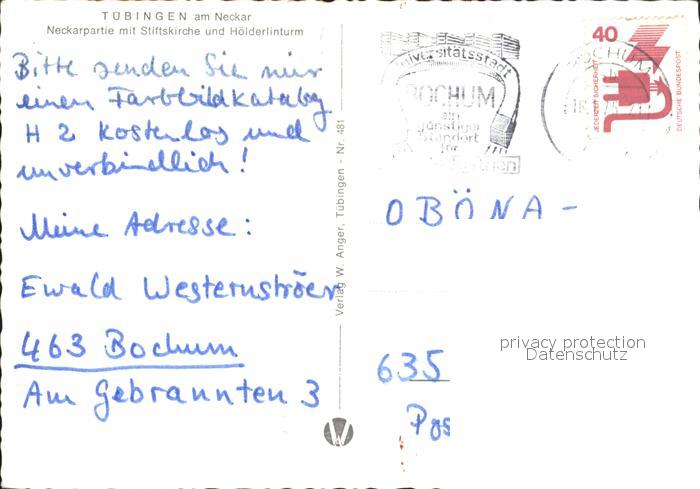 TÜBINGEN am Neckar
Neckarpartie mit Stiftskirche und Hölderlinturm
Bitte senden Sie mir
einen Farbbildkatalog
H 2 kostenlos und
unverbindlich!
Meine Adresse:
Ewald Westernströer
463 Bochum
Am Gebrannten 3
Verlag W. Anger, Tübingen - Nr. 481
W
Universitätsstadt
BOCHUM
ein
günstiger
Standort
für
BOCHUM
40
JEDERZEIT SICHERHEIT
DEUTSCHE BUNDESPOST
OBÖNA-
635
Pos
privacy protection
Datenschutz